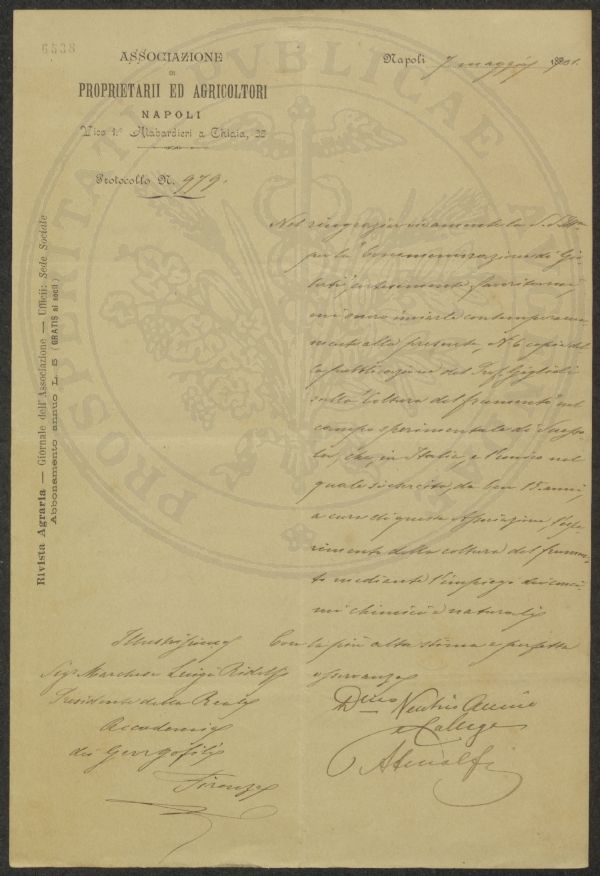 6538
ASSOCIAZIONE
DI
PROPRIETARII ED AGRICOLTORI
NAPOLI
Vico 1.° Alabardieri a Chiaia, 32
Protocollo N. 979.
Napoli 7 maggio 1901.
PROSPERITATI PUBLICAE
Rivista Agraria — Giornale dell'Associazione — Ufficii: Sede Sociale
Abbonamento annuo L. 5 (GRATIS ai socii)
Nel ringraziar vivamente la S. V. Ill.ma
per la "Commemorazione di
cortesemente favoritami,
mi onoro inviarle contemporanea-
mente alla presente, N. 6 copie del
la pubblicazione del Prof. Giglioli
sulla "Coltura del frumento" nel
campo sperimentale di Suesso-
la, che, in Italia, è l'unico nel
quale si esercita, da ben 15 anni
a cura di questa Associazione, l'espe-
rimento della coltura del frumen-
to mediante l'impiego dei conci-
mi chimici e naturali.
Con la più alta stima e perfetta
osservanza
Illustrissimo
Sig.r Marchese Luigi Ridolfi
Presidente della Reale
Accademia
dei Georgofili
Firenze
Collega